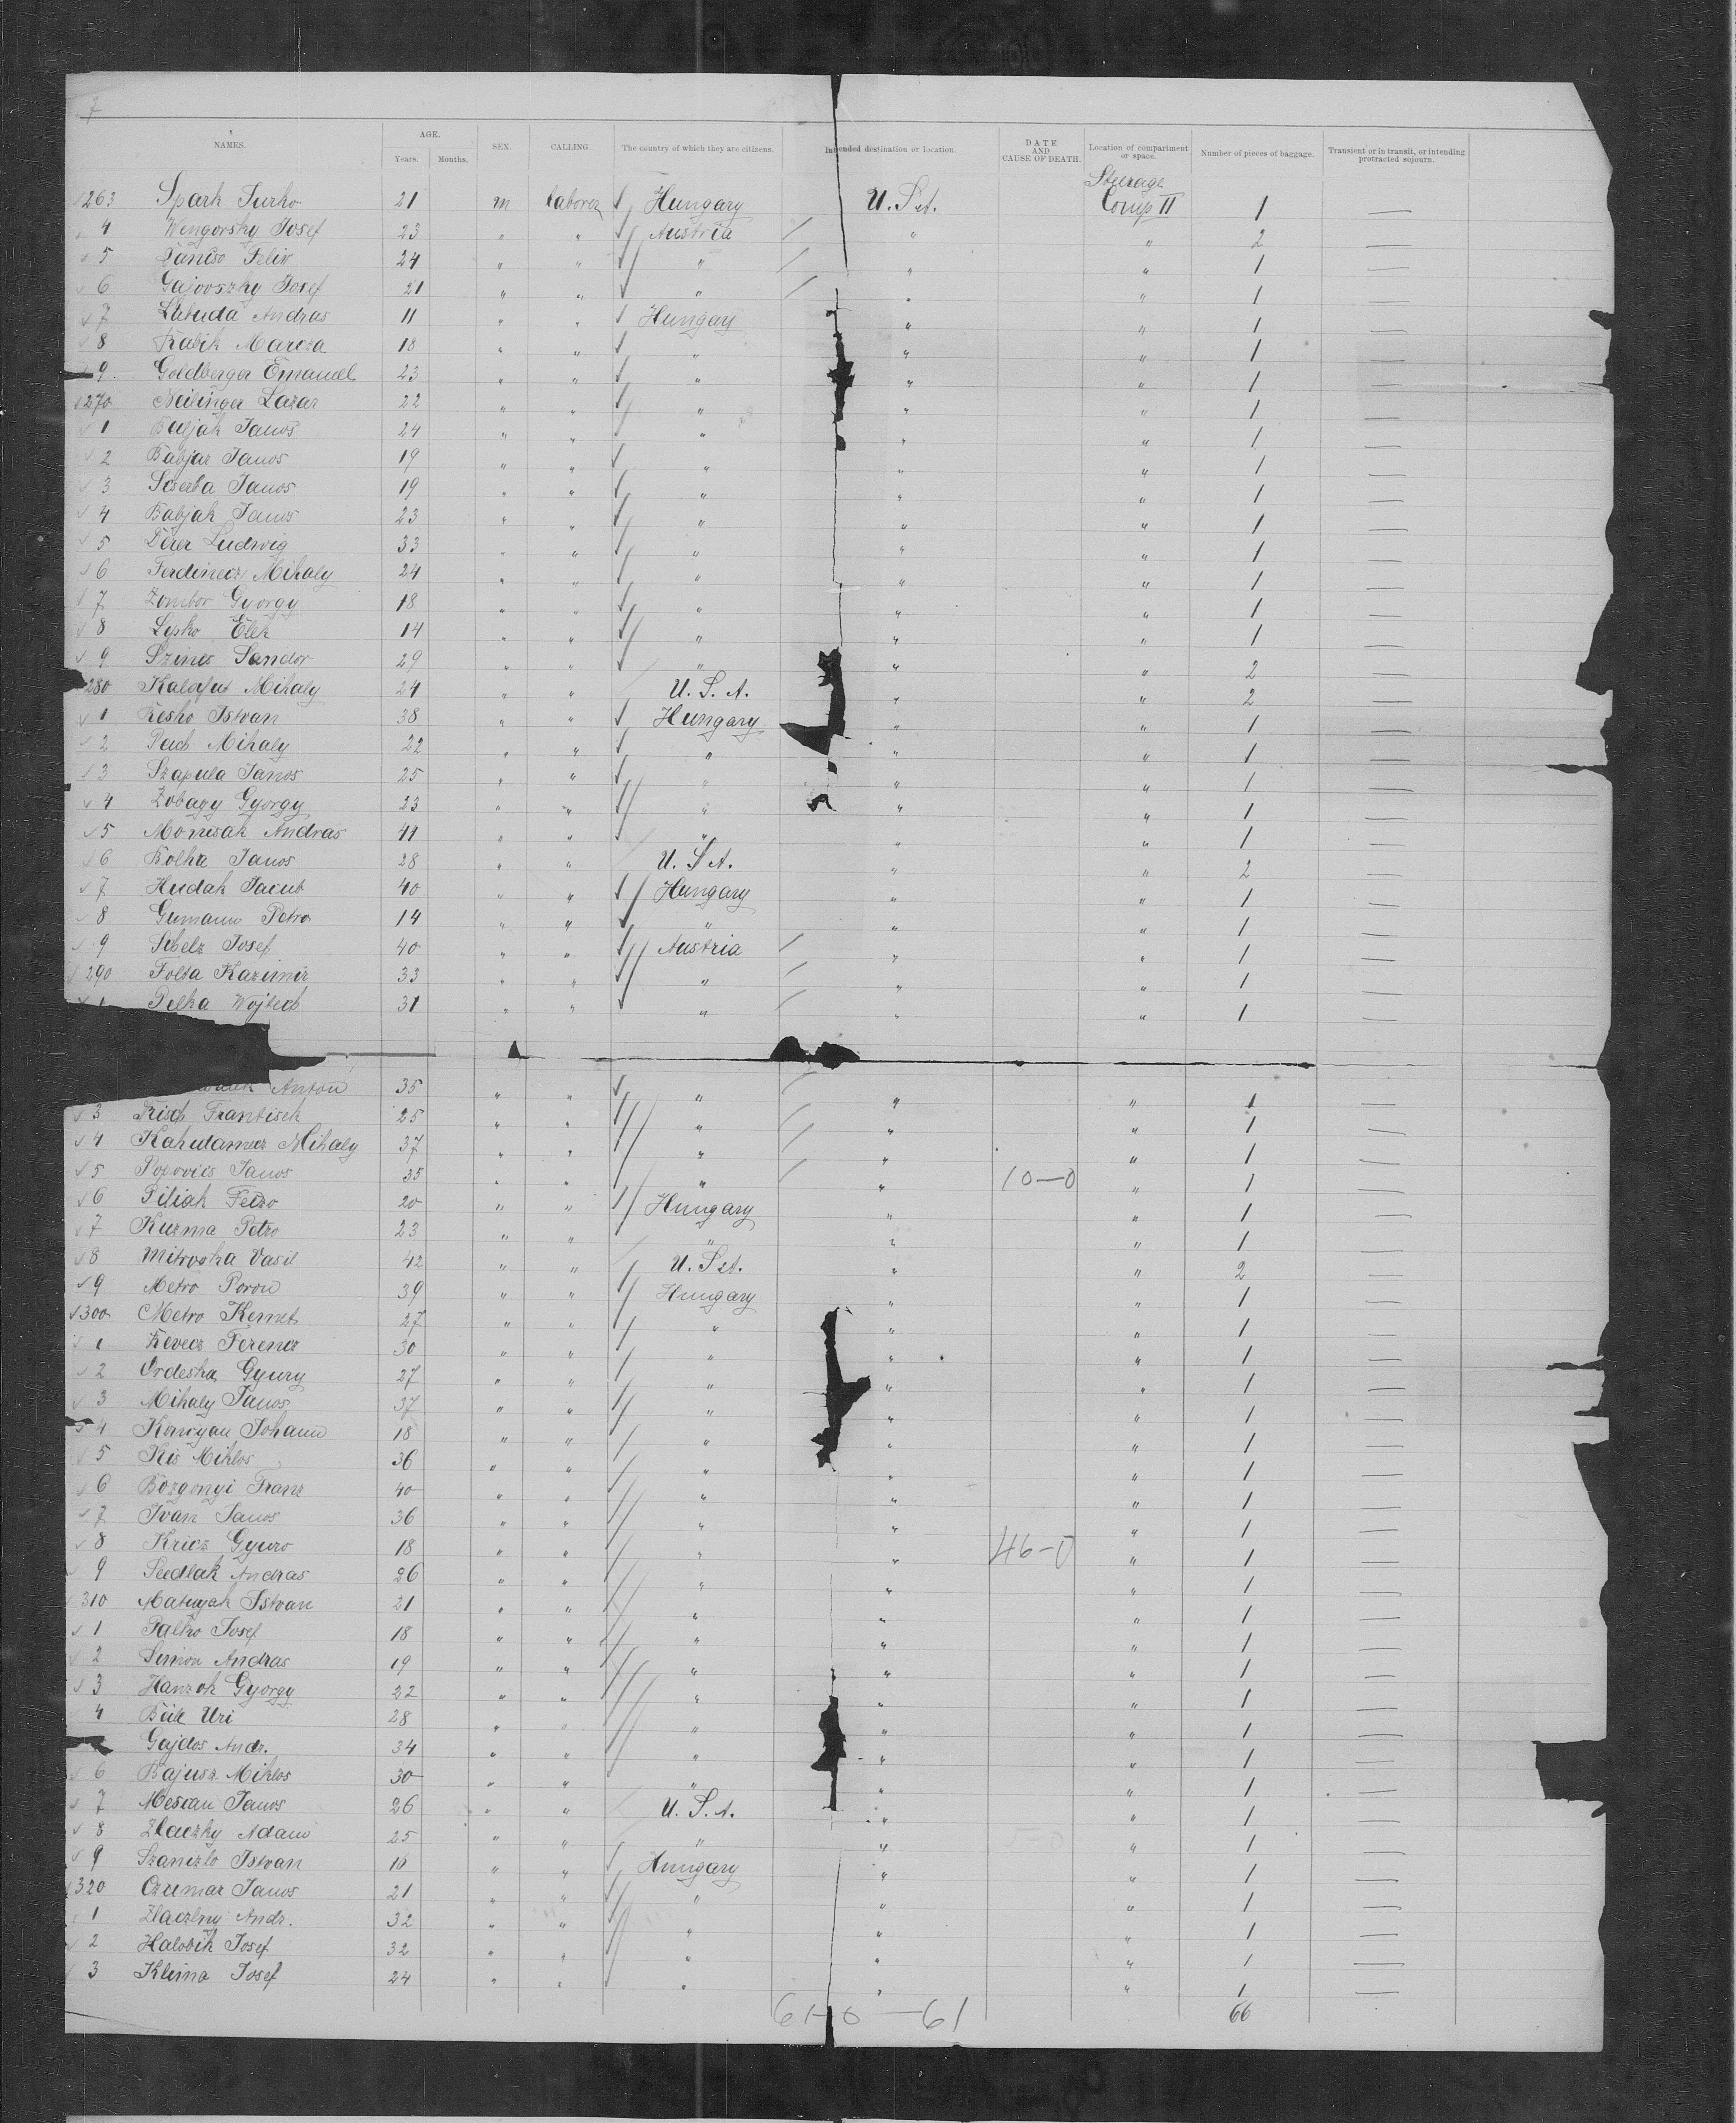 7
NAMES. AGE. Years. Months. SEX. CALLING. The country of which they are citizens. Intended destination or location. DATE AND CAUSE OF DEATH. Location of compartment or space. Number of pieces of baggage. Transient or in transit, or intending protracted sojourn.
Steerage
263 Spark Jurko 21 m laborer Hungary U.S.A. Comp II 1 —
4 Wengorsky Josef 23 " " Austria " " 2 —
5 Felix 24 " " " " " 1 —
6 Gajovszky Josef 21 " " " " " 1 —
7 Labuda Andras 11 " " Hungary " " 1 —
8 Kabik Marcza 18 " " " " " 1 —
9 Goldberger Emanuel 23 " " " " " 1 —
270 Neilinger Lazar 22 " " " " " 1 —
1 Buljak Janos 24 " " " " " 1 —
2 Babjar Janos 19 " " " " " 1 —
3 Scserba Janos 19 " " " " " 1 —
4 Babjak Janos 23 " " " " " 1 —
5 Derer Ludwig 33 " " " " " 1 —
6 Ferdinecz Mihaly 24 " " " " " 1 —
7 Zombor Gyorgy 18 " " " " " 1 —
8 Lipko Elek 14 " " " " " 1 —
9 Szines Sandor 29 " " " " " 2 —
280 Kalafut Mihaly 24 " " U.S.A. " " 2 —
1 Kesko Istvan 38 " " Hungary " " 1 —
2 Pech Mihaly 22 " " " " " 1 —
3 Szapula Janos 25 " " " " " 1 —
4 Zobagy Gyorgy 23 " " " " " 1 —
5 Moncsak Andras 41 " " " " " 1 —
6 Bolha Janos 28 " " U.S.A. " " 2 —
7 Hudak Jacub 40 " " Hungary " " 1 —
8 Gumann Petro 14 " " " " " 1 —
9 Scbelz Josef 40 " " Austria " " 1 —
290 Folta Kazimir 33 " " " " " 1 —
1 Pelka Wojtech 31 " " " " " 1 —
Anton 35 " " " " " 1 —
3 Frisch Frantisek 25 " " " " " 1 —
4 Kahudamecz Mihaly 37 " " " " " 1 —
5 Popovics Janos 35 " " " " 10-0 " 1 —
6 Pitiak Fedro 20 " " Hungary " " 1 —
7 Kuzma Petro 23 " " " " " 1 —
8 Mitrovka Vasil 42 " " U.S.A. " " 2 —
9 Metro Poron 39 " " Hungary " " 1 —
300 Metro Kemet 27 " " " " " 1 —
1 Kevecz Ferencz 30 " " " " " 1 —
2 Ordeska Gyury 27 " " " " " 1 —
3 Mihaly Janos 37 " " " " " 1 —
4 Konvyan Johann 18 " " " " " 1 —
5 Kis Miklos 36 " " " " " 1 —
6 Bozgonyi Franz 40 " " " " " 1 —
7 Ivan Janos 36 " " " " " 1 —
8 Kricz Gyuro 18 " " " " 46-0 " 1 —
9 Sedlak Andras 26 " " " " " 1 —
310 Matuyak Istvan 21 " " " " " 1 —
1 Palko Josef 18 " " " " " 1 —
2 Simon Andras 19 " " " " " 1 —
3 Hanzok Gyorgy 22 " " " " " 1 —
4 Bük Uri 28 " " " " " 1 —
Gajdos Andr. 34 " " " " " 1 —
6 Bajusz Miklos 30 " " " " " 1 —
7 Mescan Janos 26 " " U.S.A. " " 1 —
8 Zlaczky Adam 25 " " " " " 1 —
9 Szaniszlo Istvan 16 " " Hungary " " 1 —
320 Czumar Janos 21 " " " " " 1 —
1 Zlaczlny Andr. 32 " " " " " 1 —
2 Halobik Josef 32 " " " " " 1 —
3 Klima Josef 24 " " " " " 1 —
61-0-61 66